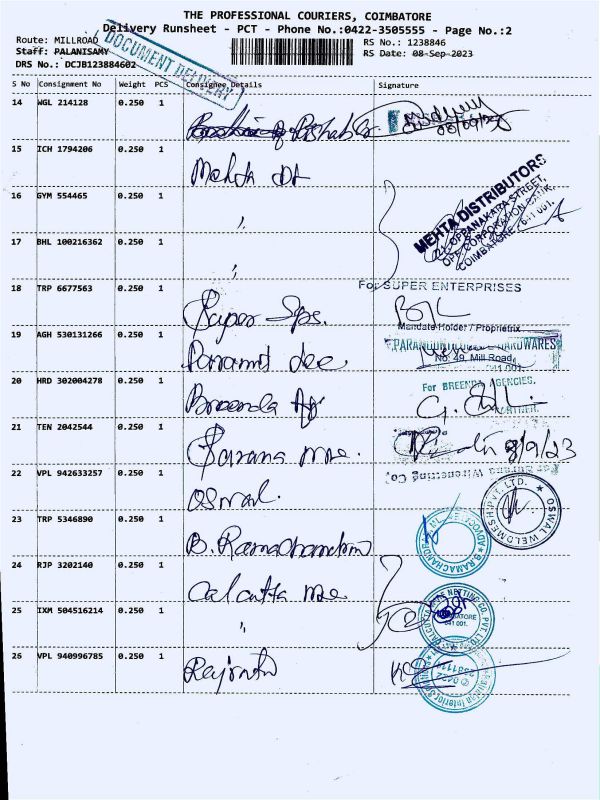 THE PROFESSIONAL COURIERS, COIMBATORE
Delivery Runsheet - PCT - Phone No.:0422-3505555 - Page No.:2
Route: MILLROAD
RS No.: 1238846
Staff: PALANISAMY
RS Date: 08-Sep-2023
DRS No.: DCJB123884602
DOCUMENT DELIVERY
S No Consignment No Weight PCS Consignee Details Signature
14 WGL 214128 0.250 1
08/09/23
15 ICH 1794206 0.250 1 Mehta Dt
16 GYM 554465 0.250 1 "
MEHTA DISTRIBUTORS
OPPANAKARA STREET,
OPP. CORPORATION BANK,
COIMBATORE - 641 001.
17 BHL 100216362 0.250 1 "
18 TRP 6677563 0.250 1 Super
For SUPER ENTERPRISES
Mandate Holder / Proprietrix
19 AGH 530131266 0.250 1
HARDWARES
No. 49, Mill Road
641 001
20 HRD 302004278 0.250 1 Breenda
For BREENDA AGENCIES,
21 TEN 2042544 0.250 1
8/9/23
Wirenetting Co.
22 VPL 942633257 0.250 1 Oswal
OSWAL WELDMESH PVT. LTD.
23 TRP 5346890 0.250 1 B. Ramachandran
B.RAMACHANDRAN
ADVOCATE
24 RJP 3202140 0.250 1 Calcutta
25 IXM 504516214 0.250 1 "
NETTING CO. PVT. LTD.
COIMBATORE
641 001.
26 VPL 940996785 0.250 1
0422